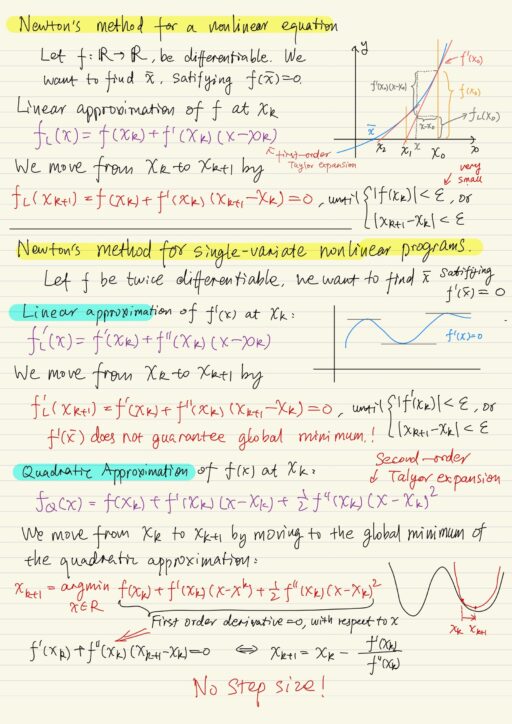 Newton's method for a nonlinear equation
Let f: ℝ → ℝ, be differentiable. We
want to find x̄, satifying f(x̄)=0.
Linear approximation of f at xₖ
f_L(x) = f(xₖ) + f'(xₖ)(x-xₖ)
first-order
Taylor expansion
y
f'(x₀)
f'(x₀)(x-x₀)
f(x₀)
x-x₀
f_L(x₀)
x̄
x₂
x₁
x
x₀
We move from xₖ to xₖ₊₁ by
very
small
f_L(xₖ₊₁) = f(xₖ) + f'(xₖ)(xₖ₊₁-xₖ) = 0, until { |f(xₖ)| < ε, or
|xₖ₊₁-xₖ| < ε
Newton's method for single-variate nonlinear programs.
Let f be twice differentiable, we want to find x̄ satisfying
f'(x̄) = 0
Linear approximation of f'(x) at xₖ:
f'_L(x) = f'(xₖ) + f''(xₖ)(x-xₖ)
f'(x)=0
We move from xₖ to xₖ₊₁ by
f'_L(xₖ₊₁) = f'(xₖ) + f''(xₖ)(xₖ₊₁-xₖ) = 0, until { |f'(xₖ)| < ε, or
|xₖ₊₁-xₖ| < ε
f'(x̄) does not guarantee global minimum!
Quadratic Approximation of f(x) at xₖ:
Second-order
Talyor expansion
f_Q(x) = f(xₖ) + f'(xₖ)(x-xₖ) + ½ f''(xₖ)(x-xₖ)²
We move from xₖ to xₖ₊₁ by moving to the global minimum of
the quadratic approximation:
xₖ₊₁ = argmin f(xₖ) + f'(xₖ)(x-xᵏ) + ½ f''(xₖ)(x-xₖ)²
x∈ℝ
First order derivative=0, with respect to x
xₖ xₖ₊₁
f'(xₖ) + f''(xₖ)(xₖ₊₁-xₖ)=0 ⇔ xₖ₊₁ = xₖ - f'(xₖ)/f''(xₖ)
No step size!